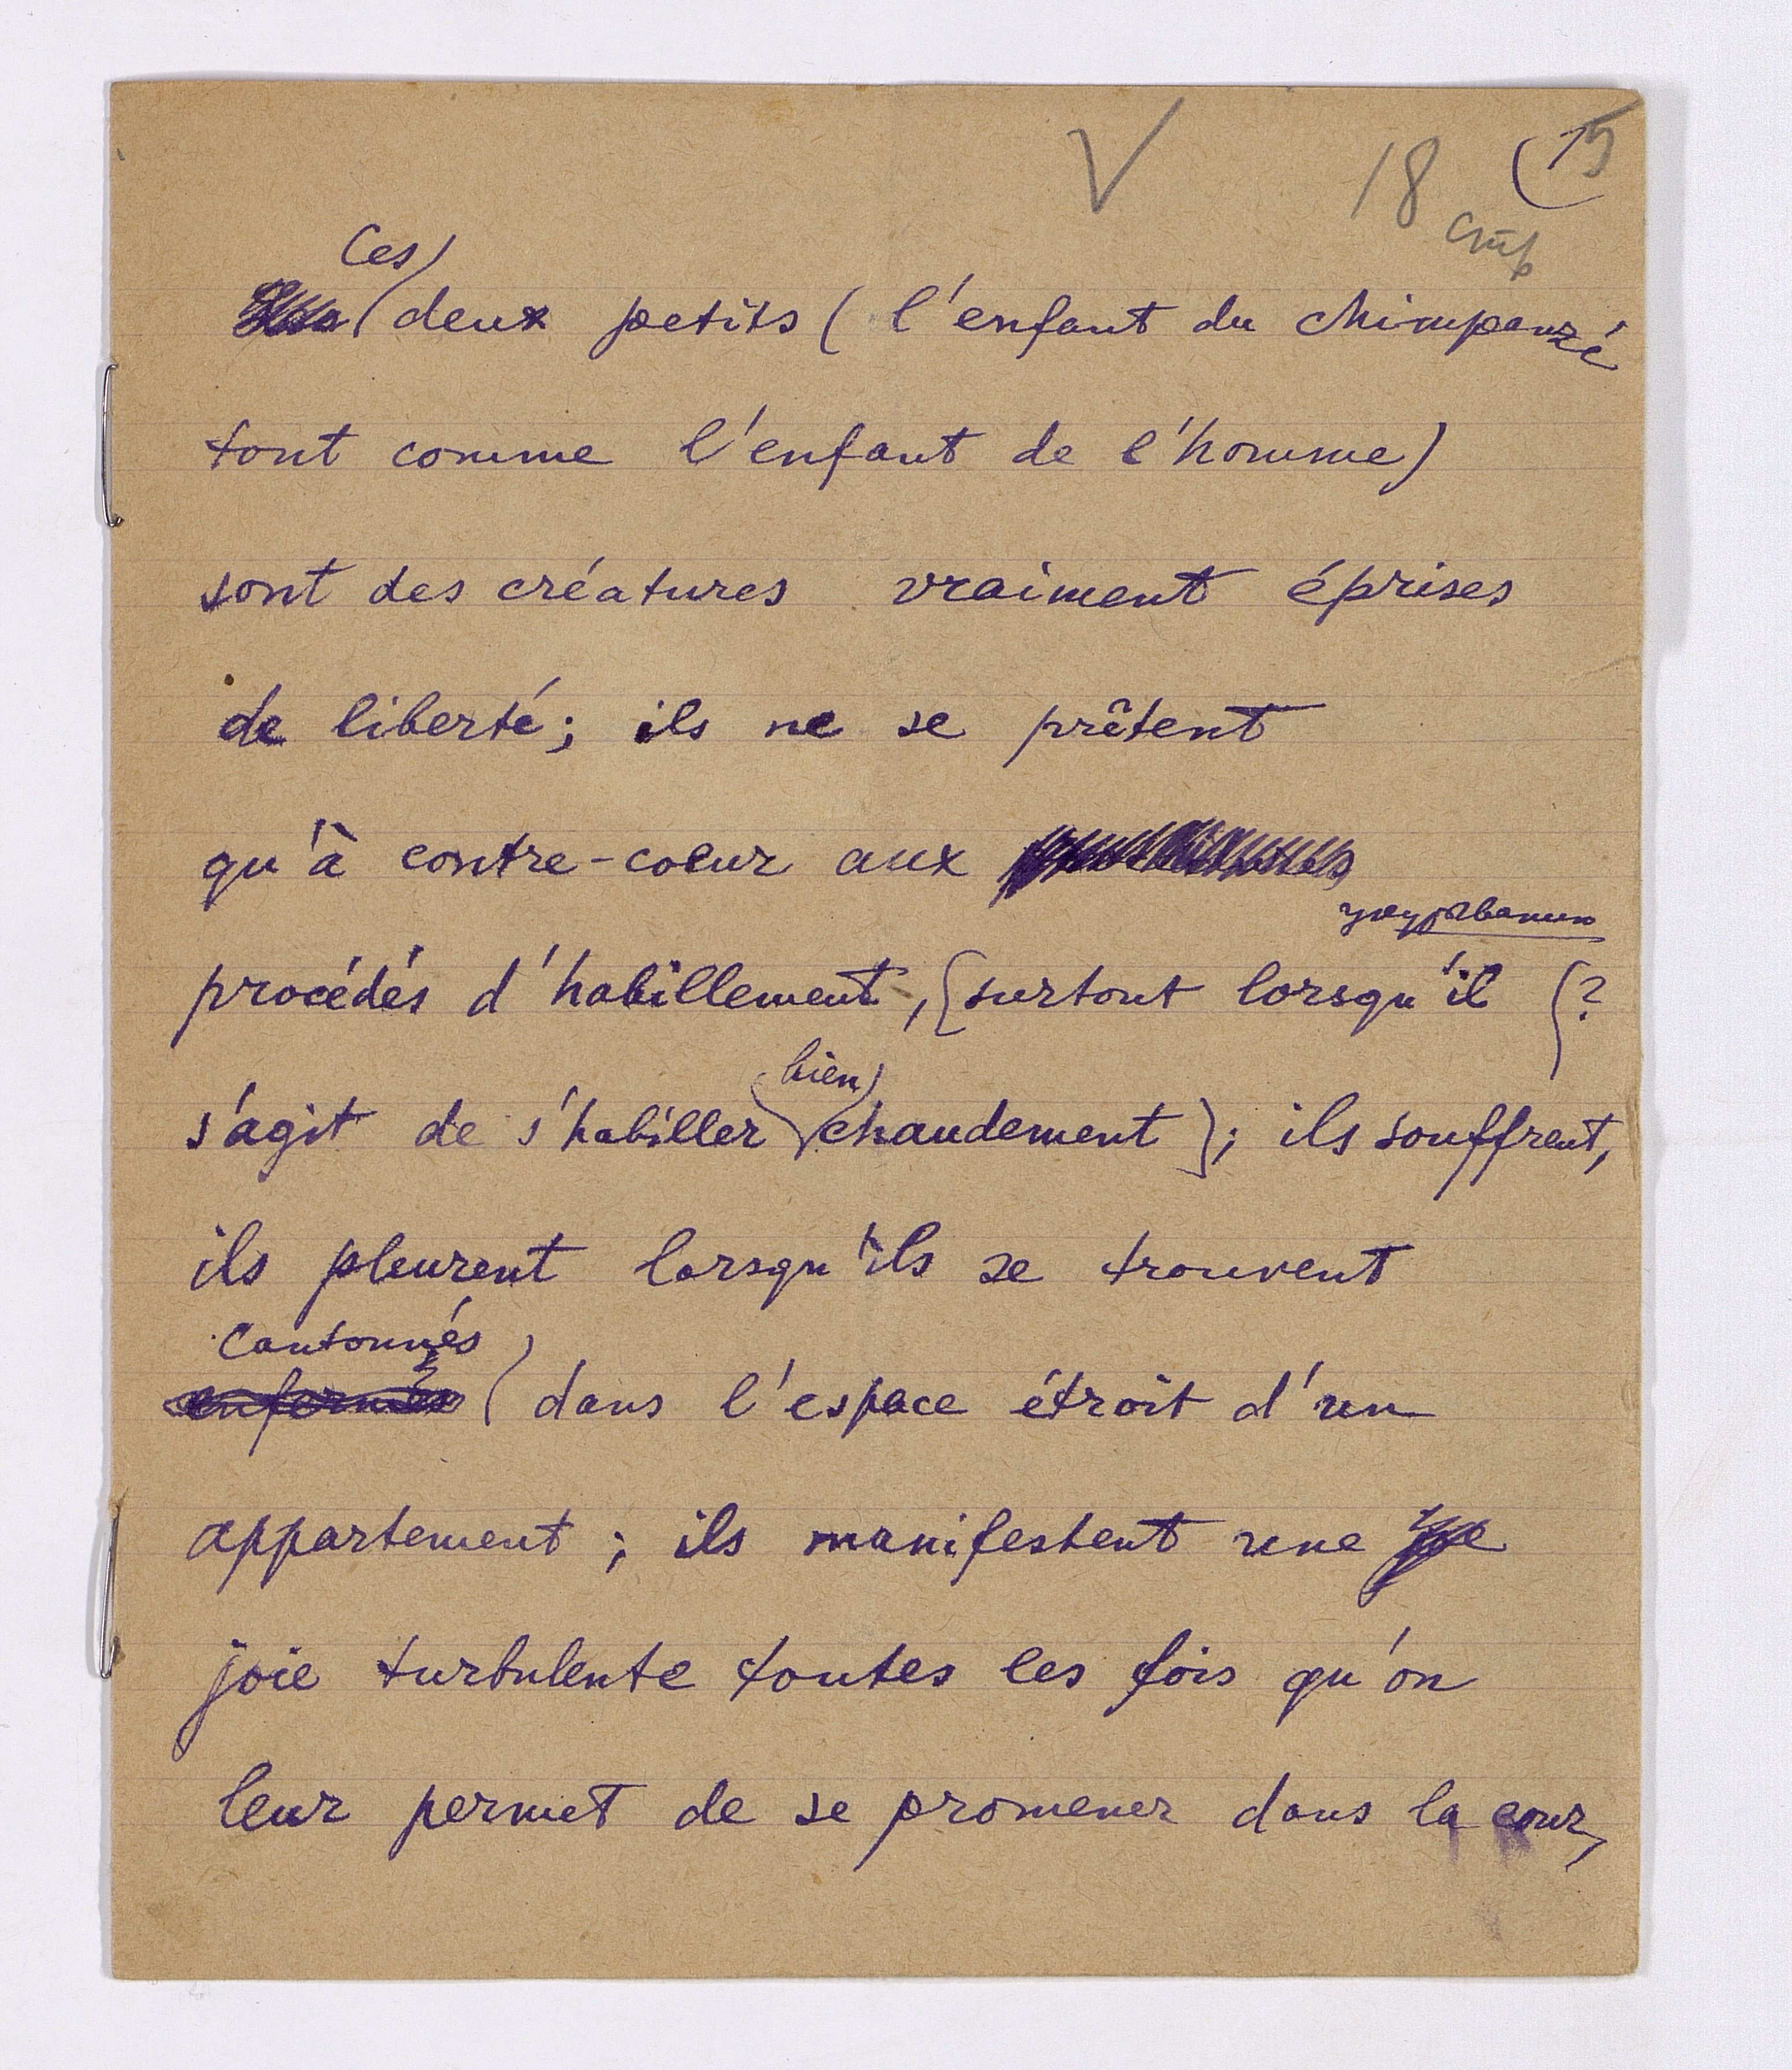 18 стр
15
Ces
deux petits (l'enfant du chimpanzé
tout comme l'enfant de l'homme)
sont des créatures vraiment éprises
de liberté; ils ne se prêtent
qu'à contre-coeur aux
procédés d'habillement, (surtout lorsqu'il (?
bien
s'agit de s'habiller chaudement); ils souffrent,
ils pleurent lorsqu'ils se trouvent
Cantonnés
enfermés dans l'espace étroit d'un
appartement; ils manifestent une
joie turbulente toutes les fois qu'on
leur permet de se promener dans la cour,